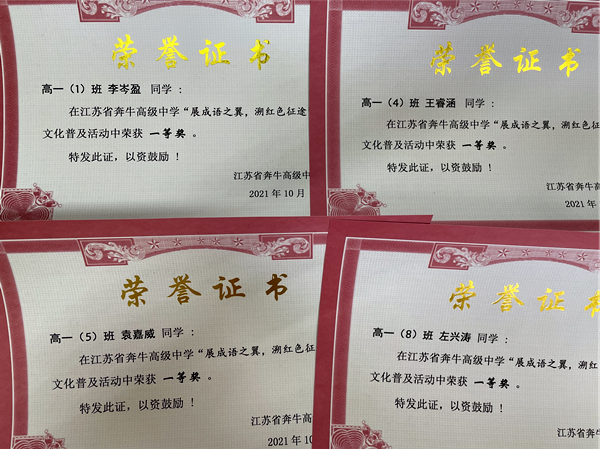 荣誉证书
高一（1）班 李岑盈 同学：
在江苏省奔牛高级中学“展成语之翼，溯红色征途
文化普及活动中荣获 一等奖 。
特发此证，以资鼓励！
江苏省奔牛高级中
2021年10月
荣誉证书
高一（4）班 王睿涵 同学：
在江苏省奔牛高级中学“展成语之翼，溯红色征
文化普及活动中荣获 一等奖 。
特发此证，以资鼓励！
江苏省奔牛高级
2021年
荣誉证书
高一（5）班 袁嘉威 同学：
在江苏省奔牛高级中学“展成语之翼，溯红色征
文化普及活动中荣获 一等奖 。
特发此证，以资鼓励！
江苏省奔牛高级
2021年10
荣誉证书
高一（8）班 左兴涛 同学：
在江苏省奔牛高级中学“展成语之翼，溯红
文化普及活动中荣获 一等奖 。
特发此证，以资鼓励！
江苏省奔牛